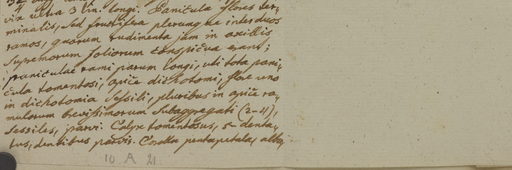 vix ultra 3 lin. longi. Panicula flores ter-
minalis, sed fructifera plerumque inter duos
ramos, quorum rudimenta jam in axillis
supremorum foliorum conspicua erant;
paniculae rami parum longi, uti tota pani-
cula tomentosi, apice dichotomi; flore uno
in dichotomia sessili, pluribus in apice ra-
mulorum brevissimorum subaggregati (2-4),
sessiles, parvi. Calyx tomentosus, 5 denta-
tus, dentibus parvis. Corolla pentapetala, alba,
10 A 21